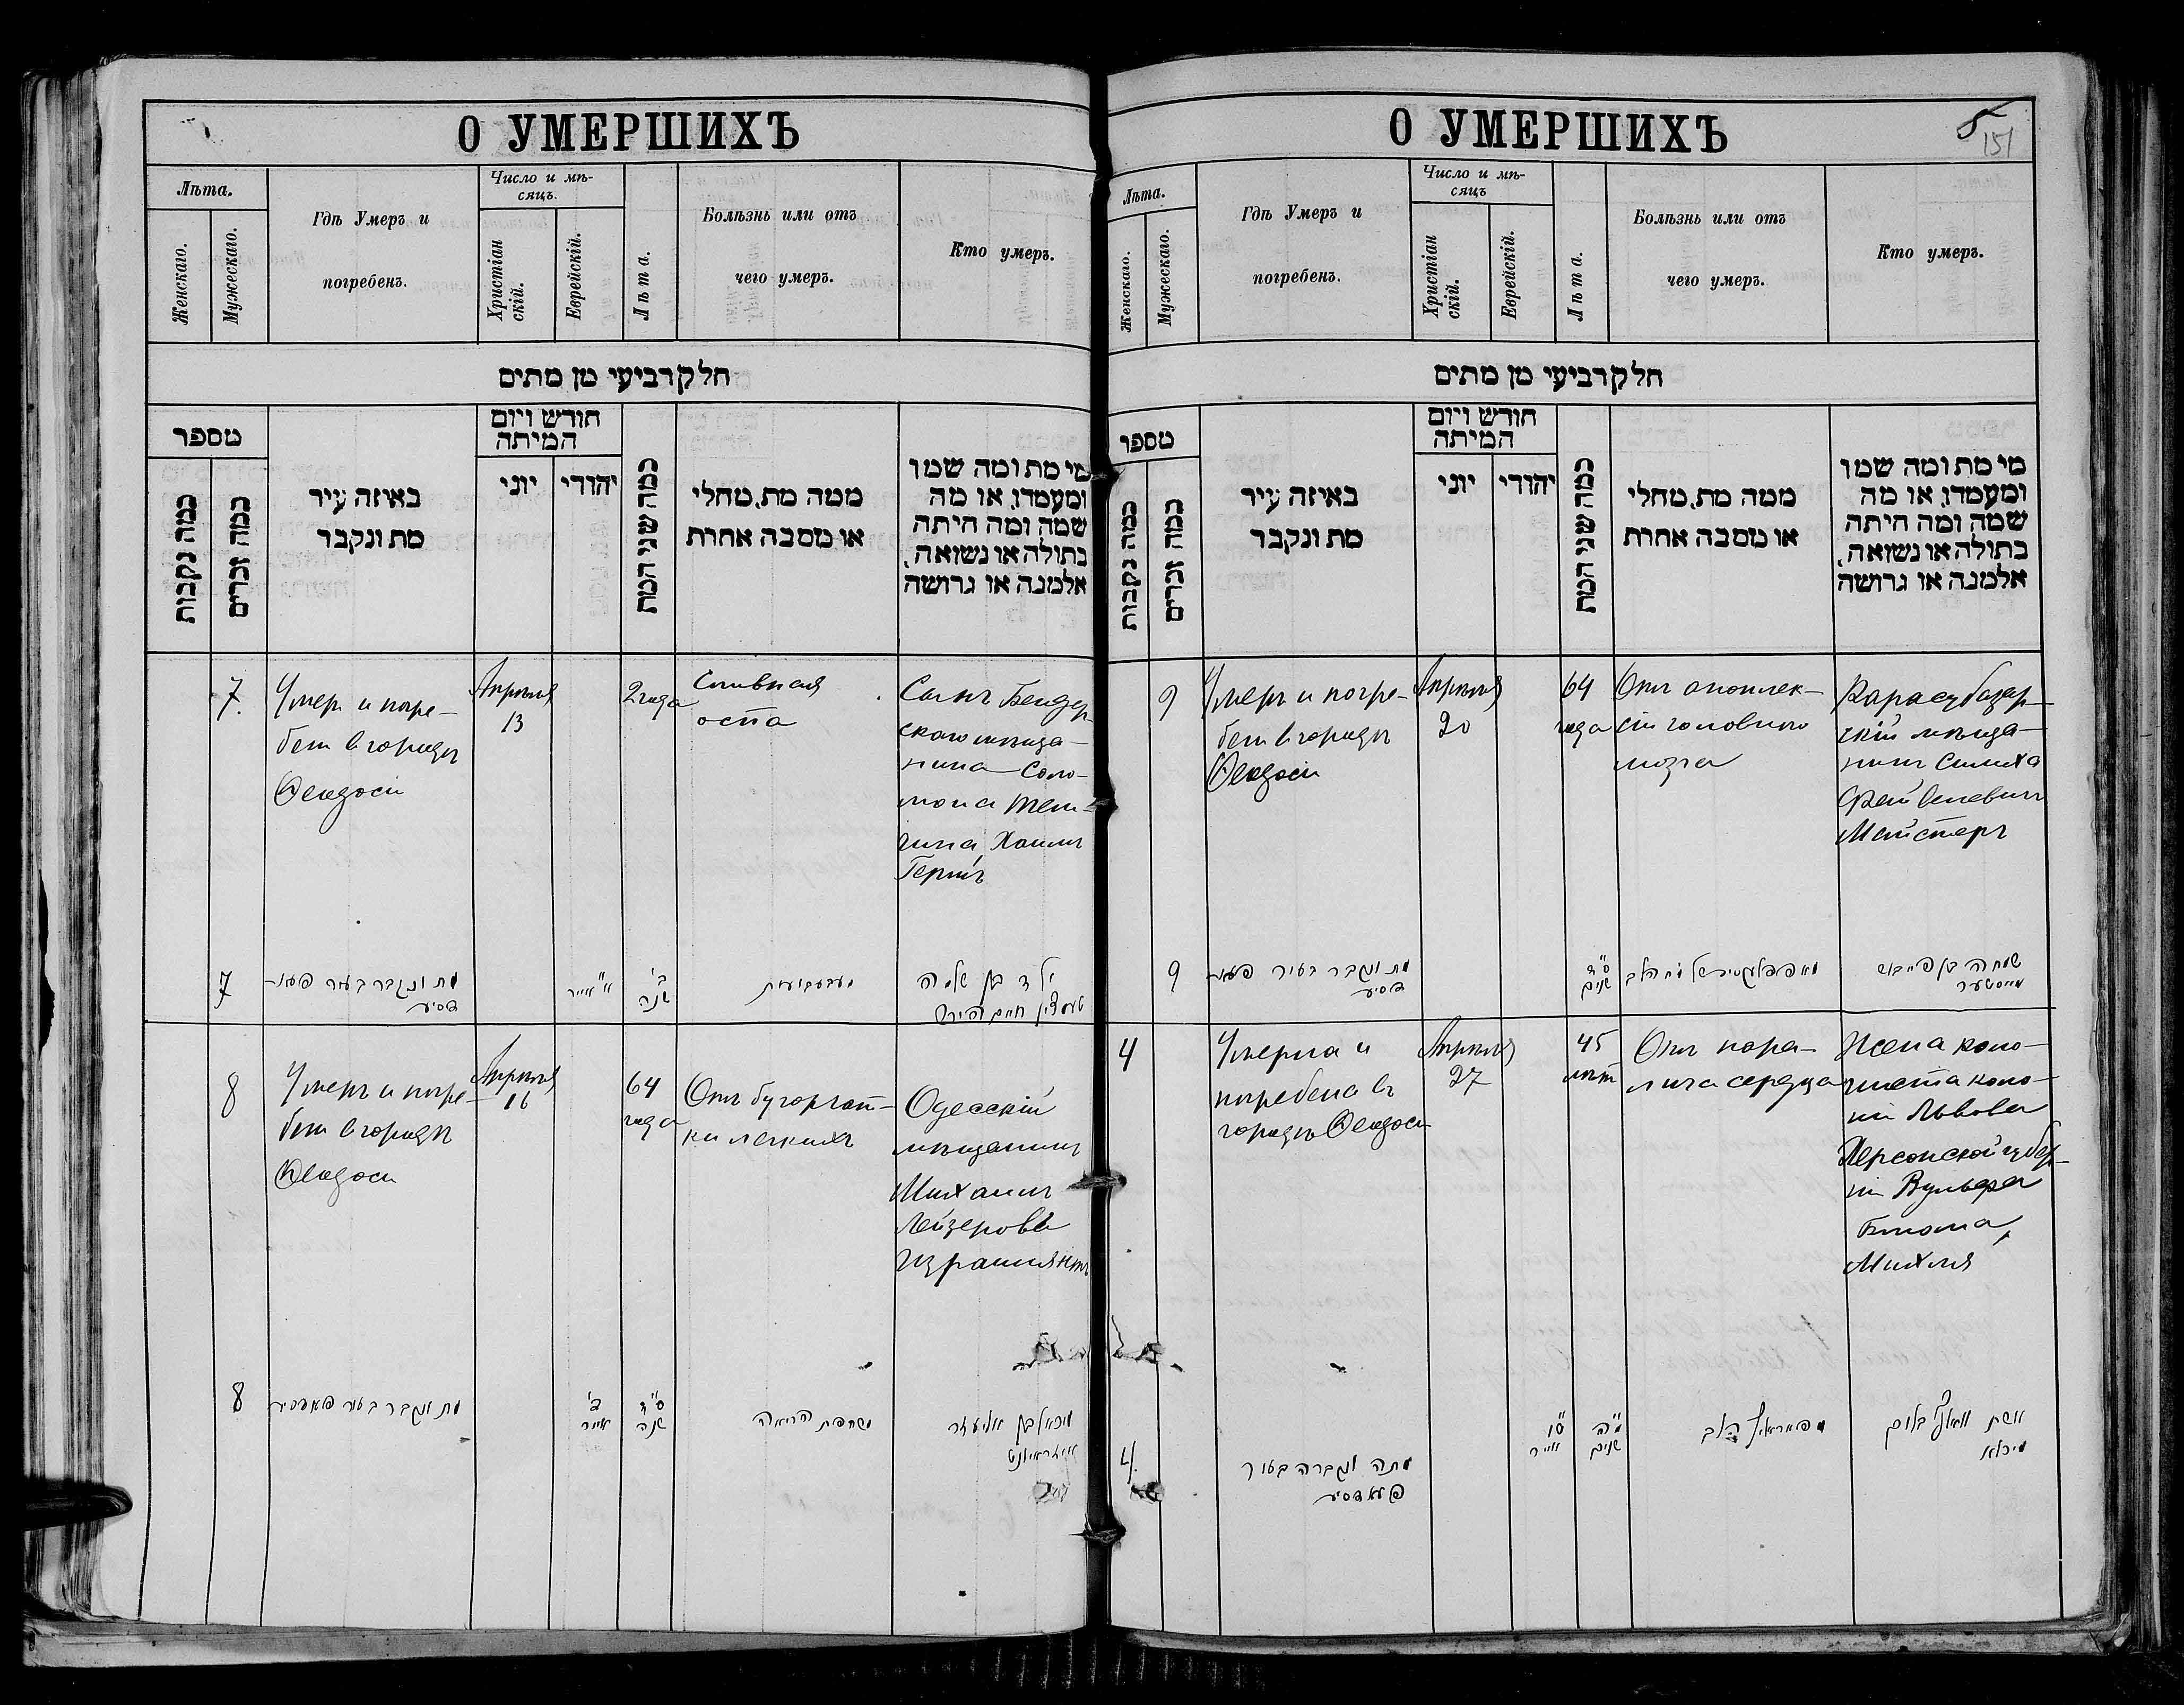 О УМЕРШИХЪ
Лѣта.
Женскаго.
Мужескаго.
Гдѣ Умеръ и
погребенъ.
Число и мѣ-
сяцъ.
Христіан
скій.
Еврейскій.
Лѣта.
Болѣзнь или отъ
чего умеръ.
Кто умеръ.
חלק רביעי מן מתים
מספר
כמה נקבות
כמה זכרים
באיזה עיר
מת ונקבר
חודש ויום
המיתה
יוני
יהודי
כמה שני המת
ממה מת, מחלי
או מסבה אחרת
מי מת ומה שמו
ומעמדו, או מה
שמה ומה היתה
בתולה או נשואה,
אלמנה או גרושה
7.
Умер и погре-
бен в городѣ
Ѳеодосіи
Апрѣля
13
2 года
Сливная
оспа
Сынъ Бендер-
скаго мѣща-
нина Соло-
мона
Хаимъ
Гершъ
7
מת ונקבר בעיר פעא-
דסיע
אייר
ב'
שנה
ילד בן שלמה
חיים הירש
8
Умеръ и погре-
бен в городѣ
Ѳеодосіи
Апрѣля
16
64
года
Отъ бугорчат-
ки легкихъ
Одесскій
мѣщанинъ
Михаилъ
Лейзеровъ
8
מת ונקבר בעיר פעאדסיע
אייר
ס"ד
שנה
משחפת הריאה
מיכאל בן אליעזר
О УМЕРШИХЪ
5
151
Лѣта.
Женскаго.
Мужескаго.
Гдѣ Умеръ и
погребенъ.
Число и мѣ-
сяцъ.
Христіан
скій.
Еврейскій.
Лѣта.
Болѣзнь или отъ
чего умеръ.
Кто умеръ.
חלק רביעי מן מתים
מספר
כמה נקבות
כמה זכרים
באיזה עיר
מת ונקבר
חודש ויום
המיתה
יוני
יהודי
כמה שני המת
ממה מת, מחלי
או מסבה אחרת
מי מת ומה שמו
ומעמדו, או מה
שמה ומה היתה
בתולה או נשואה,
אלמנה או גרושה
9
Умеръ и погре-
бен в городѣ
Ѳеодосіи
Апрѣля
20
64
года
Отъ апоплек-
сіи головного
мозга
Карасубазар-
скій мѣща-
нинъ Симха
Майстеръ
9
מת ונקבר בעיר פעא-
דסיע
ס"ד
שנים
שמחה בן פייבוש
מייסטער
4
Умерла и
погребена въ
городѣ Ѳеодосіи
Апрѣля
27
45
лѣтъ
Отъ пара-
лича сердца
Жена коло-
ниста коло-
ніи Львова
Херсонской губер-
ніи Вульфа
Блюма,
Михля
4.
מתה ונקברה בעיר
פעאדסיע
אייר
מ"ה
שנים
הלב
אשת וואלף בלום
מיכלא